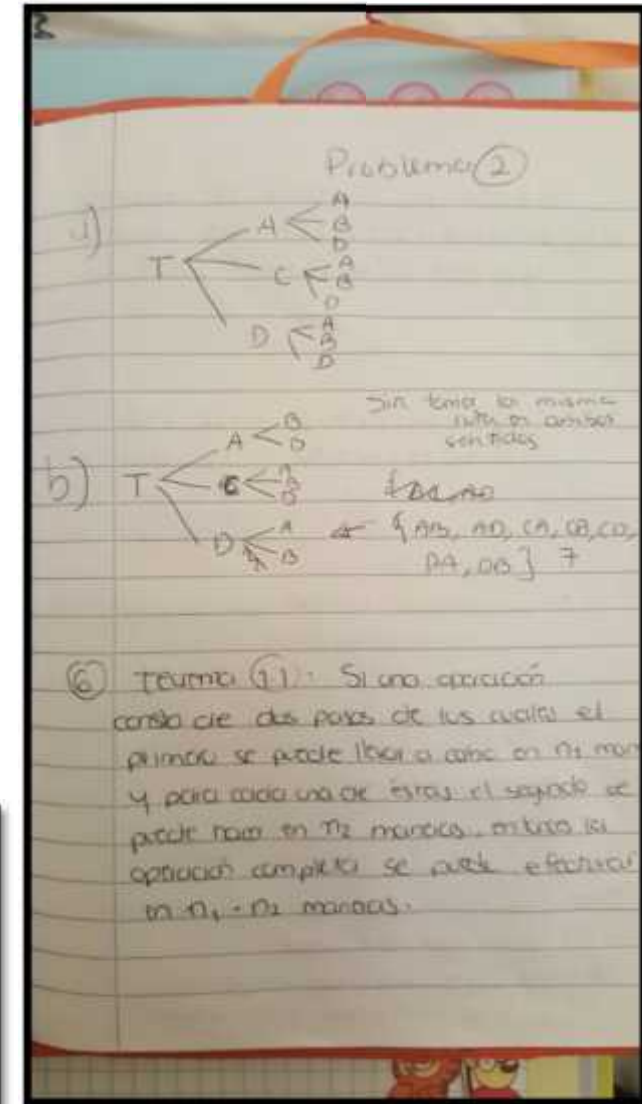 Problema 2
a)
T
A
A
B
D
C
A
B
D
D
A
B
D
Sin tomar la misma
ruta en ambos
sentidos
b)
T
A
B
D
C
A
B
D
D
A
B
{AB, AD, CA, CB, CD,
DA, DB} 7
6 Teorema 1.1: Si una operación
consta de dos pasos de los cuales el
primero se puede llevar a cabo en n1 man
y para cada una de éstas el segundo se
puede hacer en n2 maneras, entonces la
operación completa se puede efectuar
en n1 · n2 maneras.